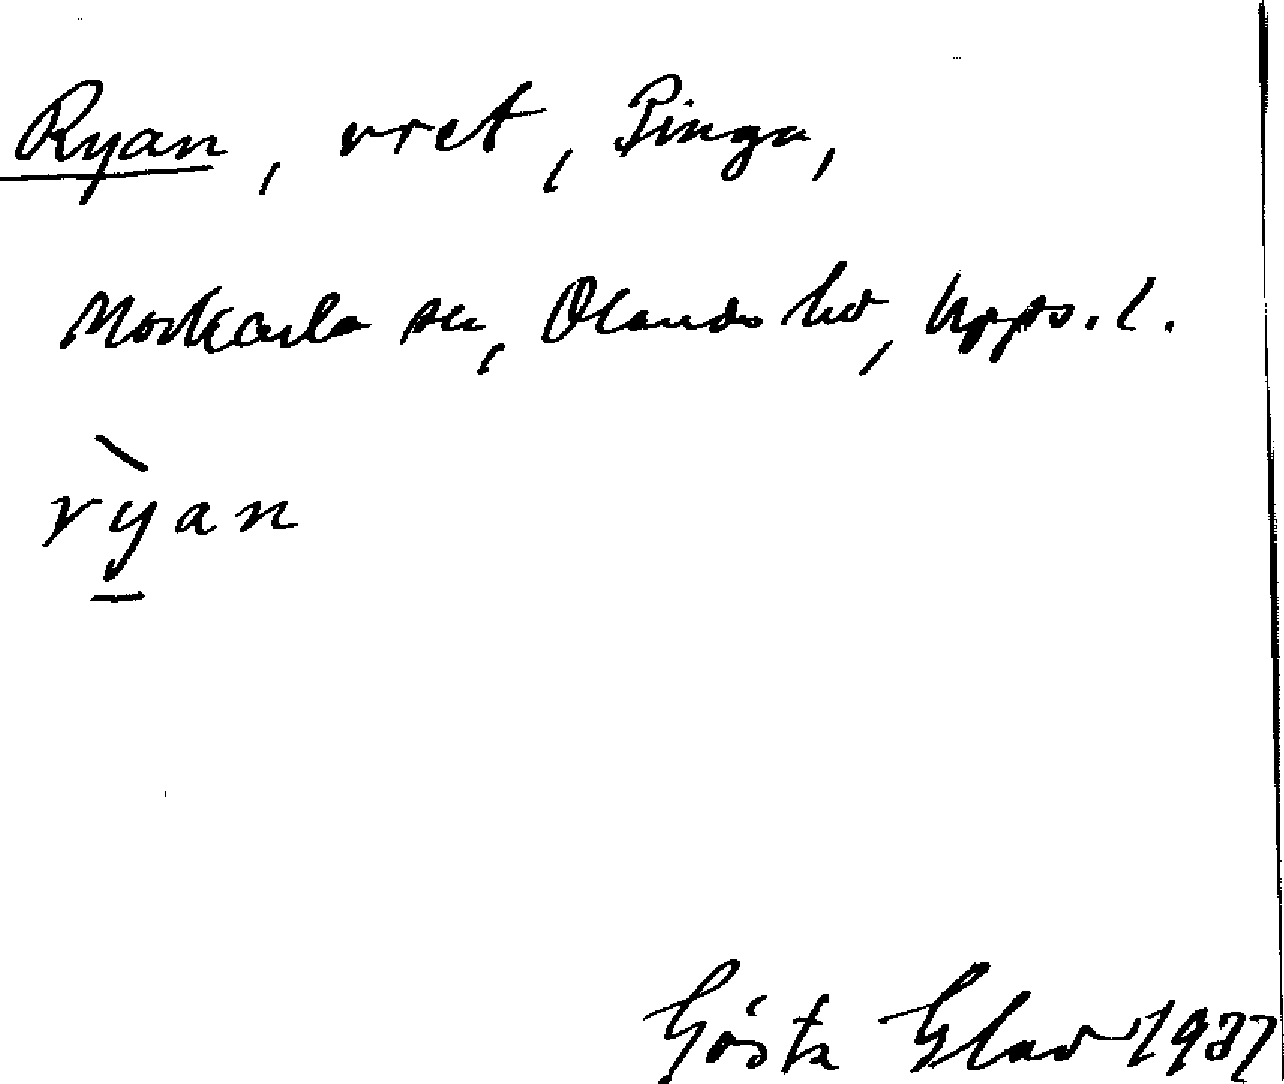 Ryan, vret, Pinga,
Morkarla sn, Olands hd, Upps. l.
rỳan
Gösta Glad 1937